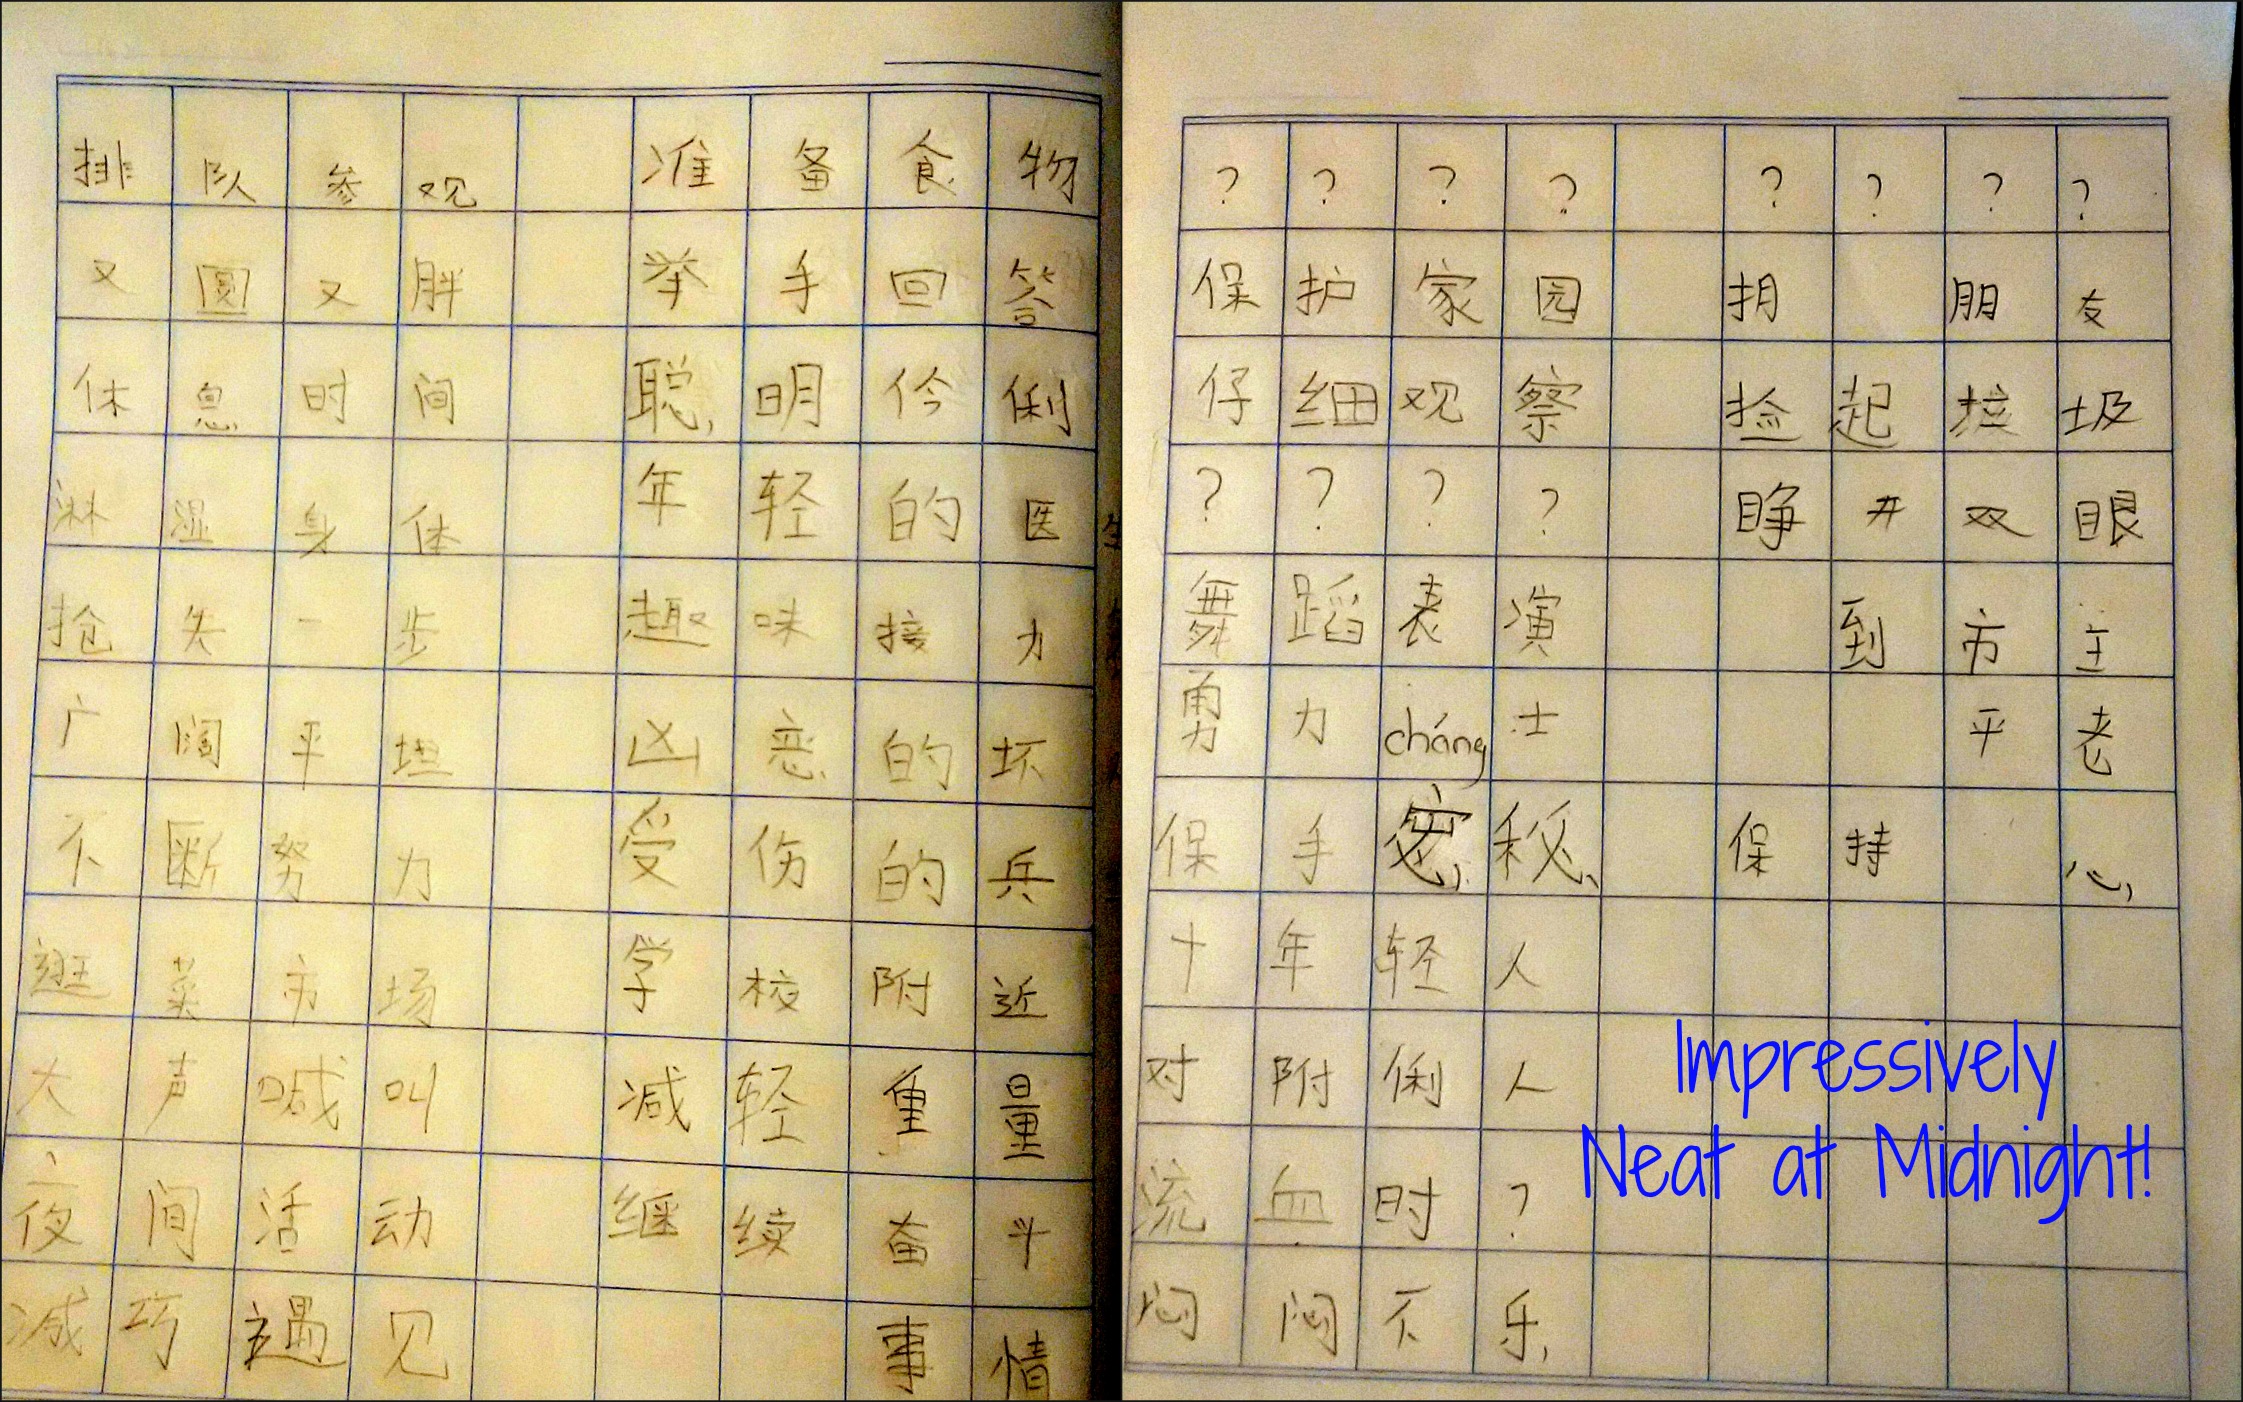 排队参观 准备食物
又圆又胖 举手回答
休息时间 聪明伶俐
淋湿身体 年轻的医生
抢失一步 趣味接力
广阔平坦 凶恶的坏
不断努力 受伤的兵
逛菜市场 学校附近
大声喊叫 减轻重量
夜间活动 继续奋斗
减巧遇见 事情
? ? ? ? ? ? ? ?
保护家园 朋友
仔细观察 捡起垃圾
? ? ? ? 睁开双眼
舞蹈表演 到市主
勇力cháng士 平老
保手密秘 保持 心
十年轻人
对附俐人
流血时?
闷闷不乐
Impressively
Neat at Midnight!